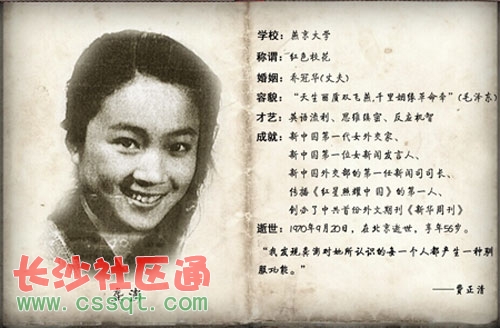 学校：燕京大学
称谓：红色校花
婚姻：乔冠华(丈夫)
容貌：“天生丽质双飞燕,千里姻缘革命牵”(毛泽东)
才艺：英语流利、思维缜密、反应机智
成就：新中国第一代女外交家、
新中国第一位女新闻发言人、
新中国外交部的第一任新闻司司长、
传播《红星照耀中国》的第一人、
创办了中共首份外文期刊《新华周刊》
逝世：1970年9月20日，在北京逝世，享年56岁。
“我发现龚澎对她所认识的每一个人都产生一种驯
服功能。”
——费正清
长沙社区通
www.cssqt.com
龚澎